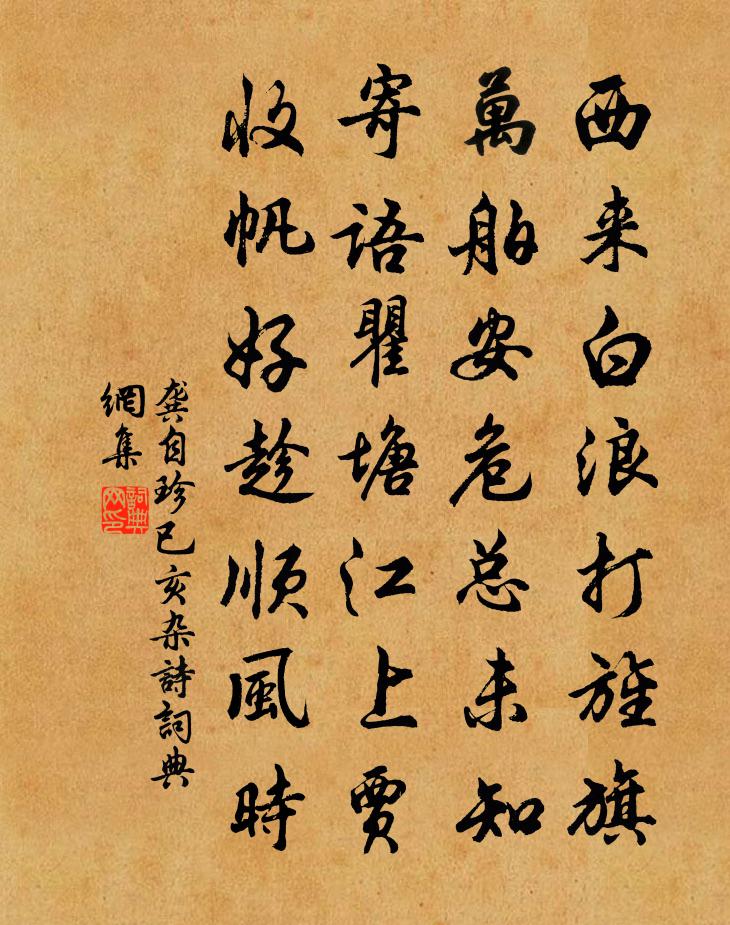 西来白浪打旌旗
萬舶安危总未知
寄語瞿塘江上賈
收帆好趁順風時
龔自珍己亥杂詩詞典
網集
詞典
网印